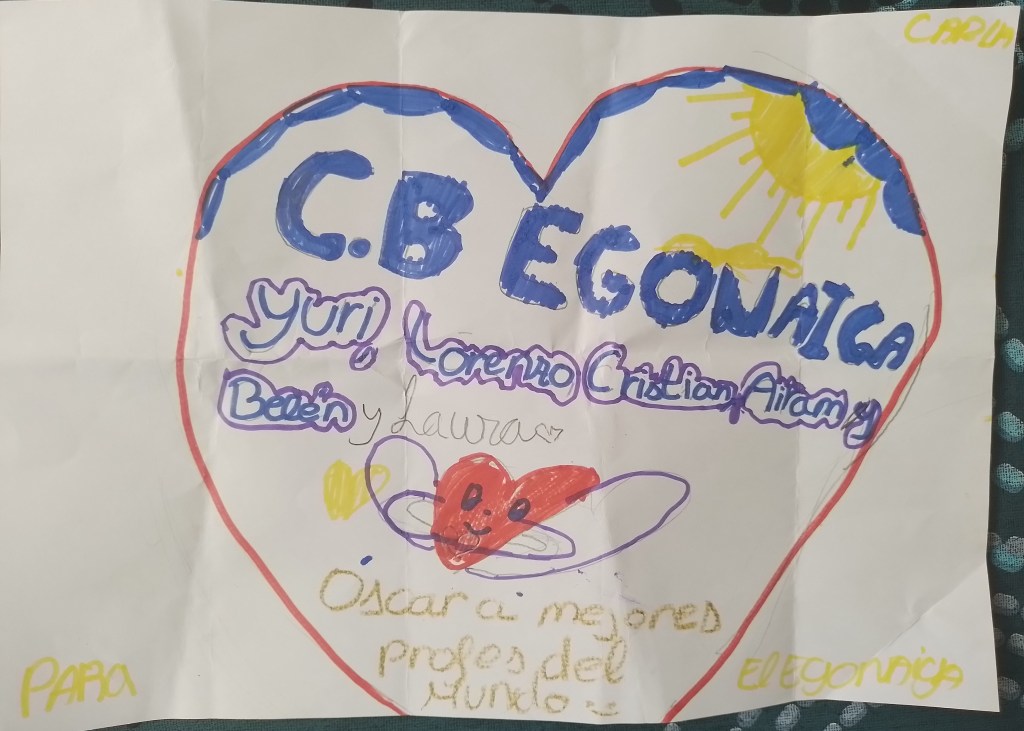 CARLA
C.B EGONAIGA
Yuri, Lorenzo Cristian, Airam y
Belén y Laura
Óscar a mejores
profes del
Mundo
PARA
El EGONAIGA